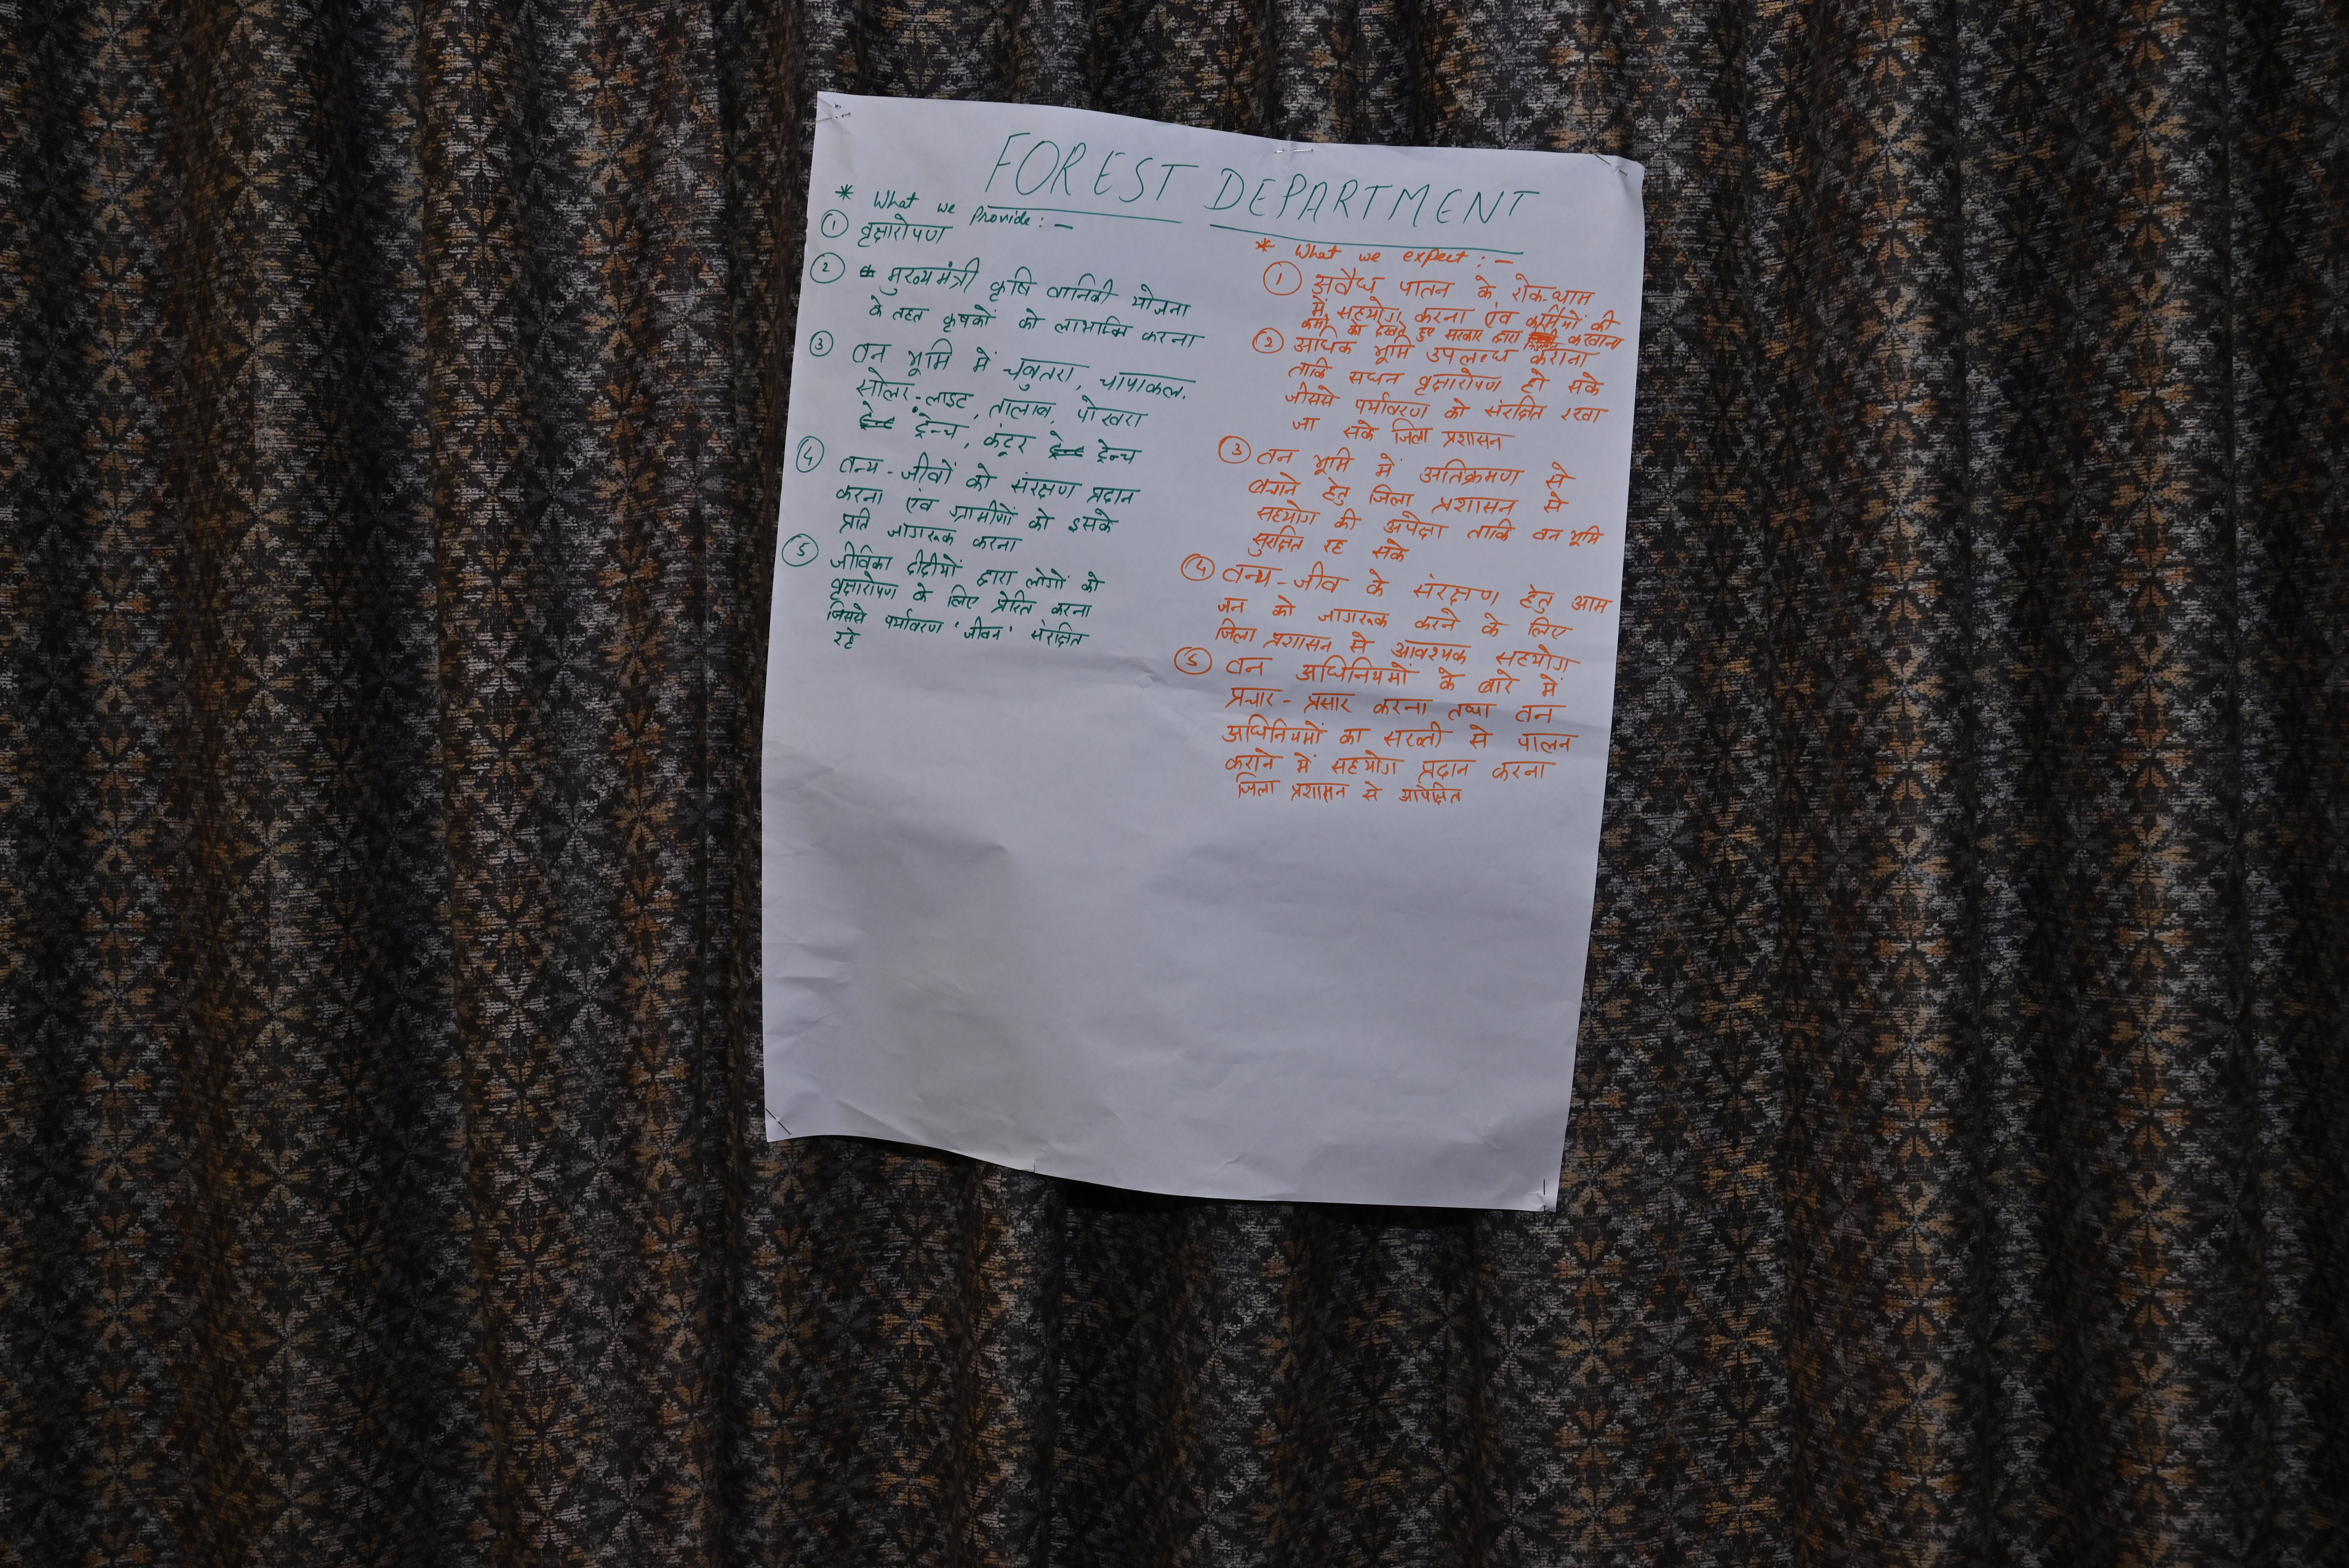 FOREST DEPARTMENT
* What we Provide : -
① वृक्षारोपण
② मुख्यमंत्री कृषि वानिकी योजना
के तहत कृषकों को लाभान्वि करना
③ वन भूमि में चबुतरा, चापाकल,
सोलर-लाइट, तालाब, पोखरा
ट्रेन्च, कंटूर ट्रेन्च
④ वन्य-जीवों को संरक्षण प्रदान
करना एंव ग्रामीणों को इसके
प्रति जागरूक करना
⑤ जीविका दीदीयों द्वारा लोगों को
वृक्षारोपण के लिए प्रेरित करना
जिससे पर्यावरण 'जीवन' संरक्षित
रहे
* What we expect : -
① अवैध पातन के रोक-थाम
में सहयोग करना एंव कर्मियों की
कमी को देखते हुए सरकार द्वारा करवाना
② अधिक भूमि उपलब्ध कराना
ताकि सघन वृक्षारोपण हो सके
जीससे पर्यावरण को संरक्षित रखा
जा सके जिला प्रशासन
③ वन भूमि में अतिक्रमण से
बचाने हेतु जिला प्रशासन से
सहयोग की अपेक्षा ताकि वन भूमि
सुरक्षित रह सके
④ वन्य-जीव के संरक्षण हेतु आम
जन को जागरूक करने के लिए
जिला प्रशासन से आवश्यक सहयोग
⑤ वन अधिनियमों के बारे में
प्रचार-प्रसार करना तथा वन
अधिनियमों का सख्ती से पालन
कराने में सहयोग प्रदान करना
जिला प्रशासन से आपेक्षित